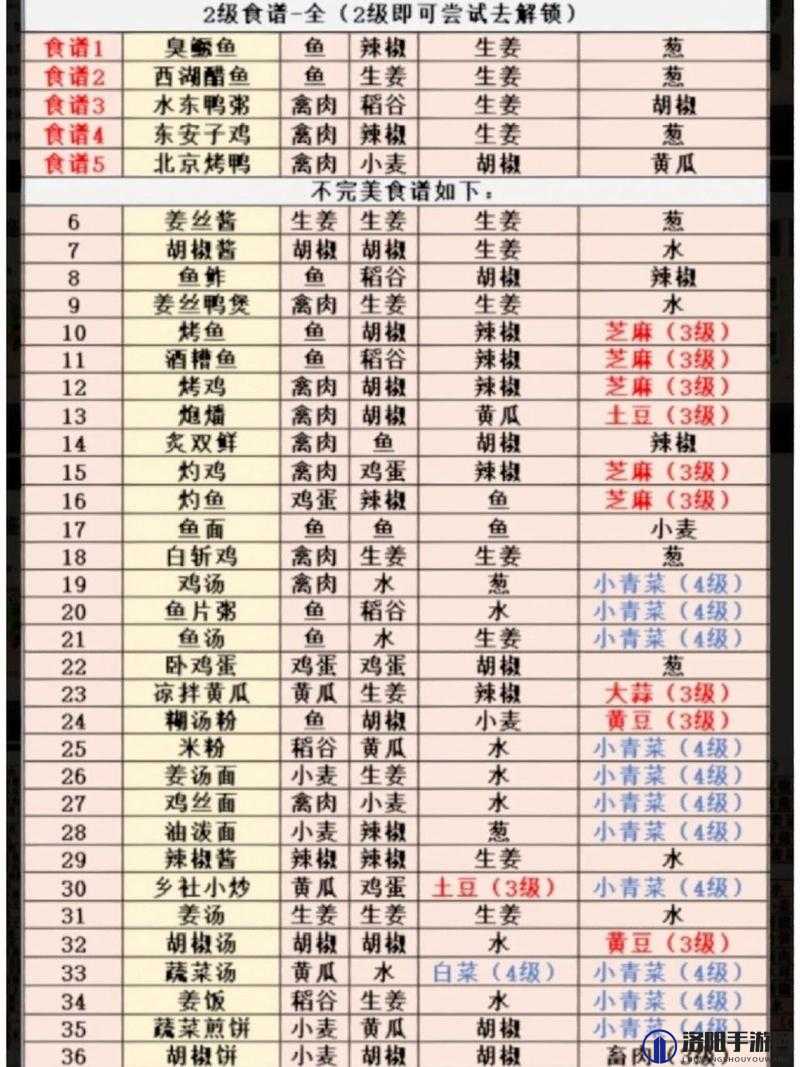 2级食谱-全（2级即可尝试去解锁）
食谱1 臭鳜鱼 鱼 辣椒 生姜 葱
食谱2 西湖醋鱼 鱼 生姜 生姜 葱
食谱3 水东鸭粥 禽肉 稻谷 生姜 胡椒
食谱4 东安子鸡 禽肉 辣椒 生姜 葱
食谱5 北京烤鸭 禽肉 小麦 胡椒 黄瓜
不完美食谱如下：
6 姜丝酱 生姜 生姜 生姜 葱
7 胡椒酱 胡椒 胡椒 生姜 水
8 鱼鲊 鱼 稻谷 胡椒 辣椒
9 姜丝鸭煲 禽肉 生姜 生姜 水
10 烤鱼 鱼 胡椒 辣椒 芝麻（3级）
11 酒糟鱼 鱼 稻谷 辣椒 芝麻（3级）
12 烤鸡 禽肉 胡椒 辣椒 芝麻（3级）
13 炮燔 禽肉 胡椒 黄瓜 土豆（3级）
14 炙双鲜 禽肉 鱼 胡椒 辣椒
15 灼鸡 禽肉 鸡蛋 辣椒 芝麻（3级）
16 灼鱼 鸡蛋 辣椒 鱼 芝麻（3级）
17 鱼面 鱼 鱼 鱼 小麦
18 白斩鸡 禽肉 生姜 生姜 葱
19 鸡汤 禽肉 水 葱 小青菜（4级）
20 鱼片粥 鱼 稻谷 水 小青菜（4级）
21 鱼汤 鱼 水 生姜 小青菜（4级）
22 卧鸡蛋 鸡蛋 鸡蛋 胡椒 葱
23 凉拌黄瓜 黄瓜 生姜 辣椒 大蒜（3级）
24 糊汤粉 鱼 胡椒 小麦 黄豆（3级）
25 米粉 稻谷 黄瓜 水 小青菜（4级）
26 姜汤面 小麦 生姜 水 小青菜（4级）
27 鸡丝面 禽肉 小麦 水 小青菜（4级）
28 油泼面 小麦 辣椒 葱 小青菜（4级）
29 辣椒酱 辣椒 辣椒 生姜 水
30 乡社小炒 黄瓜 鸡蛋 土豆（3级） 小青菜（4级）
31 姜汤 生姜 生姜 生姜 水
32 胡椒汤 胡椒 胡椒 水 黄豆（3级）
33 蔬菜汤 黄瓜 水 白菜（4级） 小青菜（4级）
34 姜饭 稻谷 生姜 水 小青菜（4级）
35 蔬菜煎饼 小麦 黄瓜 胡椒 小青菜（4级）
36 胡椒饼 小麦 胡椒 胡椒 畜肉
洛阳手游